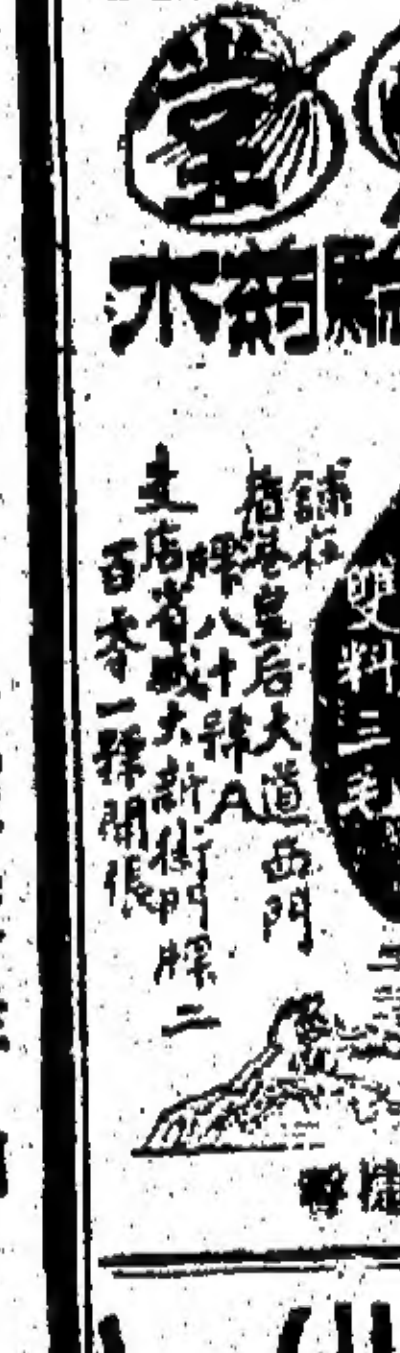 堂
水葯驗
舖在
香港皇后大道西門
牌八十號A
支店省城大新街門牌二
百零一號開張
雙料三毛